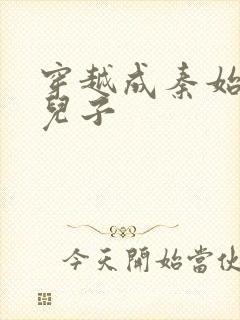 穿越成秦始
兒子
今天開始當伙